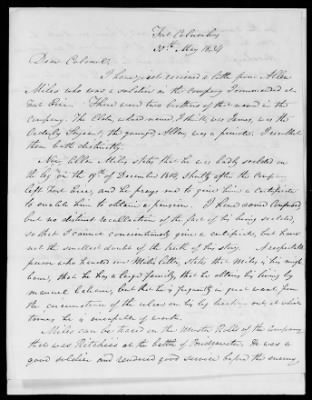 Fort Columbus
30th May 1839
Dear Colonel,
I have just received a letter from Allen
Miles who was a soldier in the company I commanded at
Fort Erie. There were two brothers of that name in the
company. The Elder, whose name I think was James, was the
Orderly Sergeant, the younger Allen was a private. I recollect
them both distinctly.
Now Allen Miles states that he was badly scalded on
the leg on the 19th of December 1814, shortly after the company
left Fort Erie, and he prays me to give him a certificate
to enable him to obtain a pension. I have some confused
but no distinct recollection of the fact of his being scalded,
so that I cannot conscientiously give a certificate, but have
not the smallest doubt of the truth of his story. A respectable
person who handed me Miles letter states that Miles is his neigh
bour, that he has a large family, that he obtains his living by
manual labour, but that he is frequently in great want, from
the circumstance of the ulcer on his leg breaking out at which
times he is incapable of work.
Miles can be traced on the Muster Rolls of the Company
that was Ritchie's at the battle of Bridgewater. He was a
good soldier and rendered good service before the enemy,